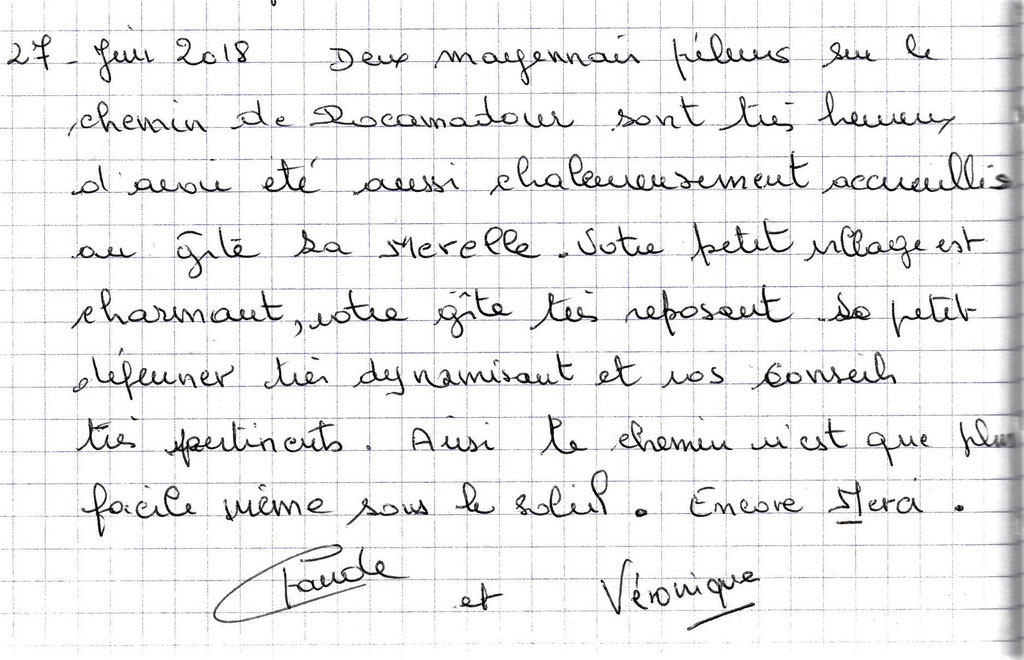 27 - Juin 2018 Deux mayennais pélerins sur le
chemin de Rocamadour sont très heureux
d'avoir été aussi chaleureusement accueillis
au gîte La Merelle. Votre petit village est
charmant, votre gîte très reposant le petit
déjeuner très dynamisant et vos conseils
très pertinents. Ainsi le chemin n'est que plus
facile même sous le soleil. Encore Merci.
Claude et Véronique